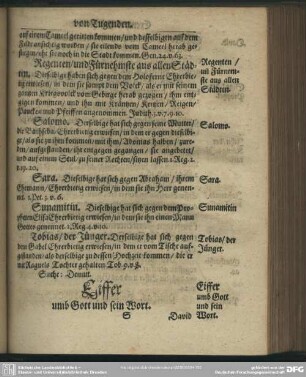 von Tugenden.
auf einem Camel geritten kommen / und desselbigen auf dem
Felde ansichtig worden / sie alsobald vom Camel herab ge-
Gen. 24. v. 63.
Regenten / und Fürnehmste aus allen Städ-
ten. Dieselbige haben sich gegen dem Holoferne Ehrerbie-
tig erwiesen / in dem sie samt dem Volck / als er mit seinem
gantzen Kriegsvolck vom Gebirge herab gezogen / ihm entge-
gen kommen / und ihn mit Kräntzen / Kertzen / Reigen /
Paucken und Pfeiffen angenommen Judith. 3. v. 7. 9. 10.
Salomo. Dieselbige hat sich gegen seiner Mutter /
der Bathseba Ehrerbietig erwiesen / in dem er gegen dieselbi-
ge / als sie zu ihm kommen / und mit ihm Adonia halben
ihr entgegen gegangen / sie angebetet /
und auf einem Stul zu seiner Rechten sitzen lassen. 1. Reg. 2.
v. 19. 20.
Sara. Dieselbige hat sich gegen Abraham / ihrem
Ehmann / Ehrerbietig erwiesen / in dem sie ihn Herr genen-
net. 1. Pet. 3. v. 6.
Sunamitin. Dieselbige hat sich gegen dem Pro-
pheten Elisa Ehrerbietig erwiesen / in dem sie ihn einen Mann
Gottes genennet. 2. Reg. 4. v. 10.
Tobias / der Jünger. Derselbige hat sich gegen
den Gabel Ehrerbietig erwiesen / in dem er vom Tische auf-
gestanden / als derselbige zu dessen Hochzeit kommen / die er
mit Raguels Tochter gehalten Tob. 9. v. 8.
Siehe: Demut.
Eiffer
umb Gott und sein Wort.
S
David
Regenten /
und Fürnem-
ste aus allen
Städten.
Salomo.
Sara.
Sunamitin
Tobias / der
Jünger.
Eiffer
umb Gott
und sein
Wort.